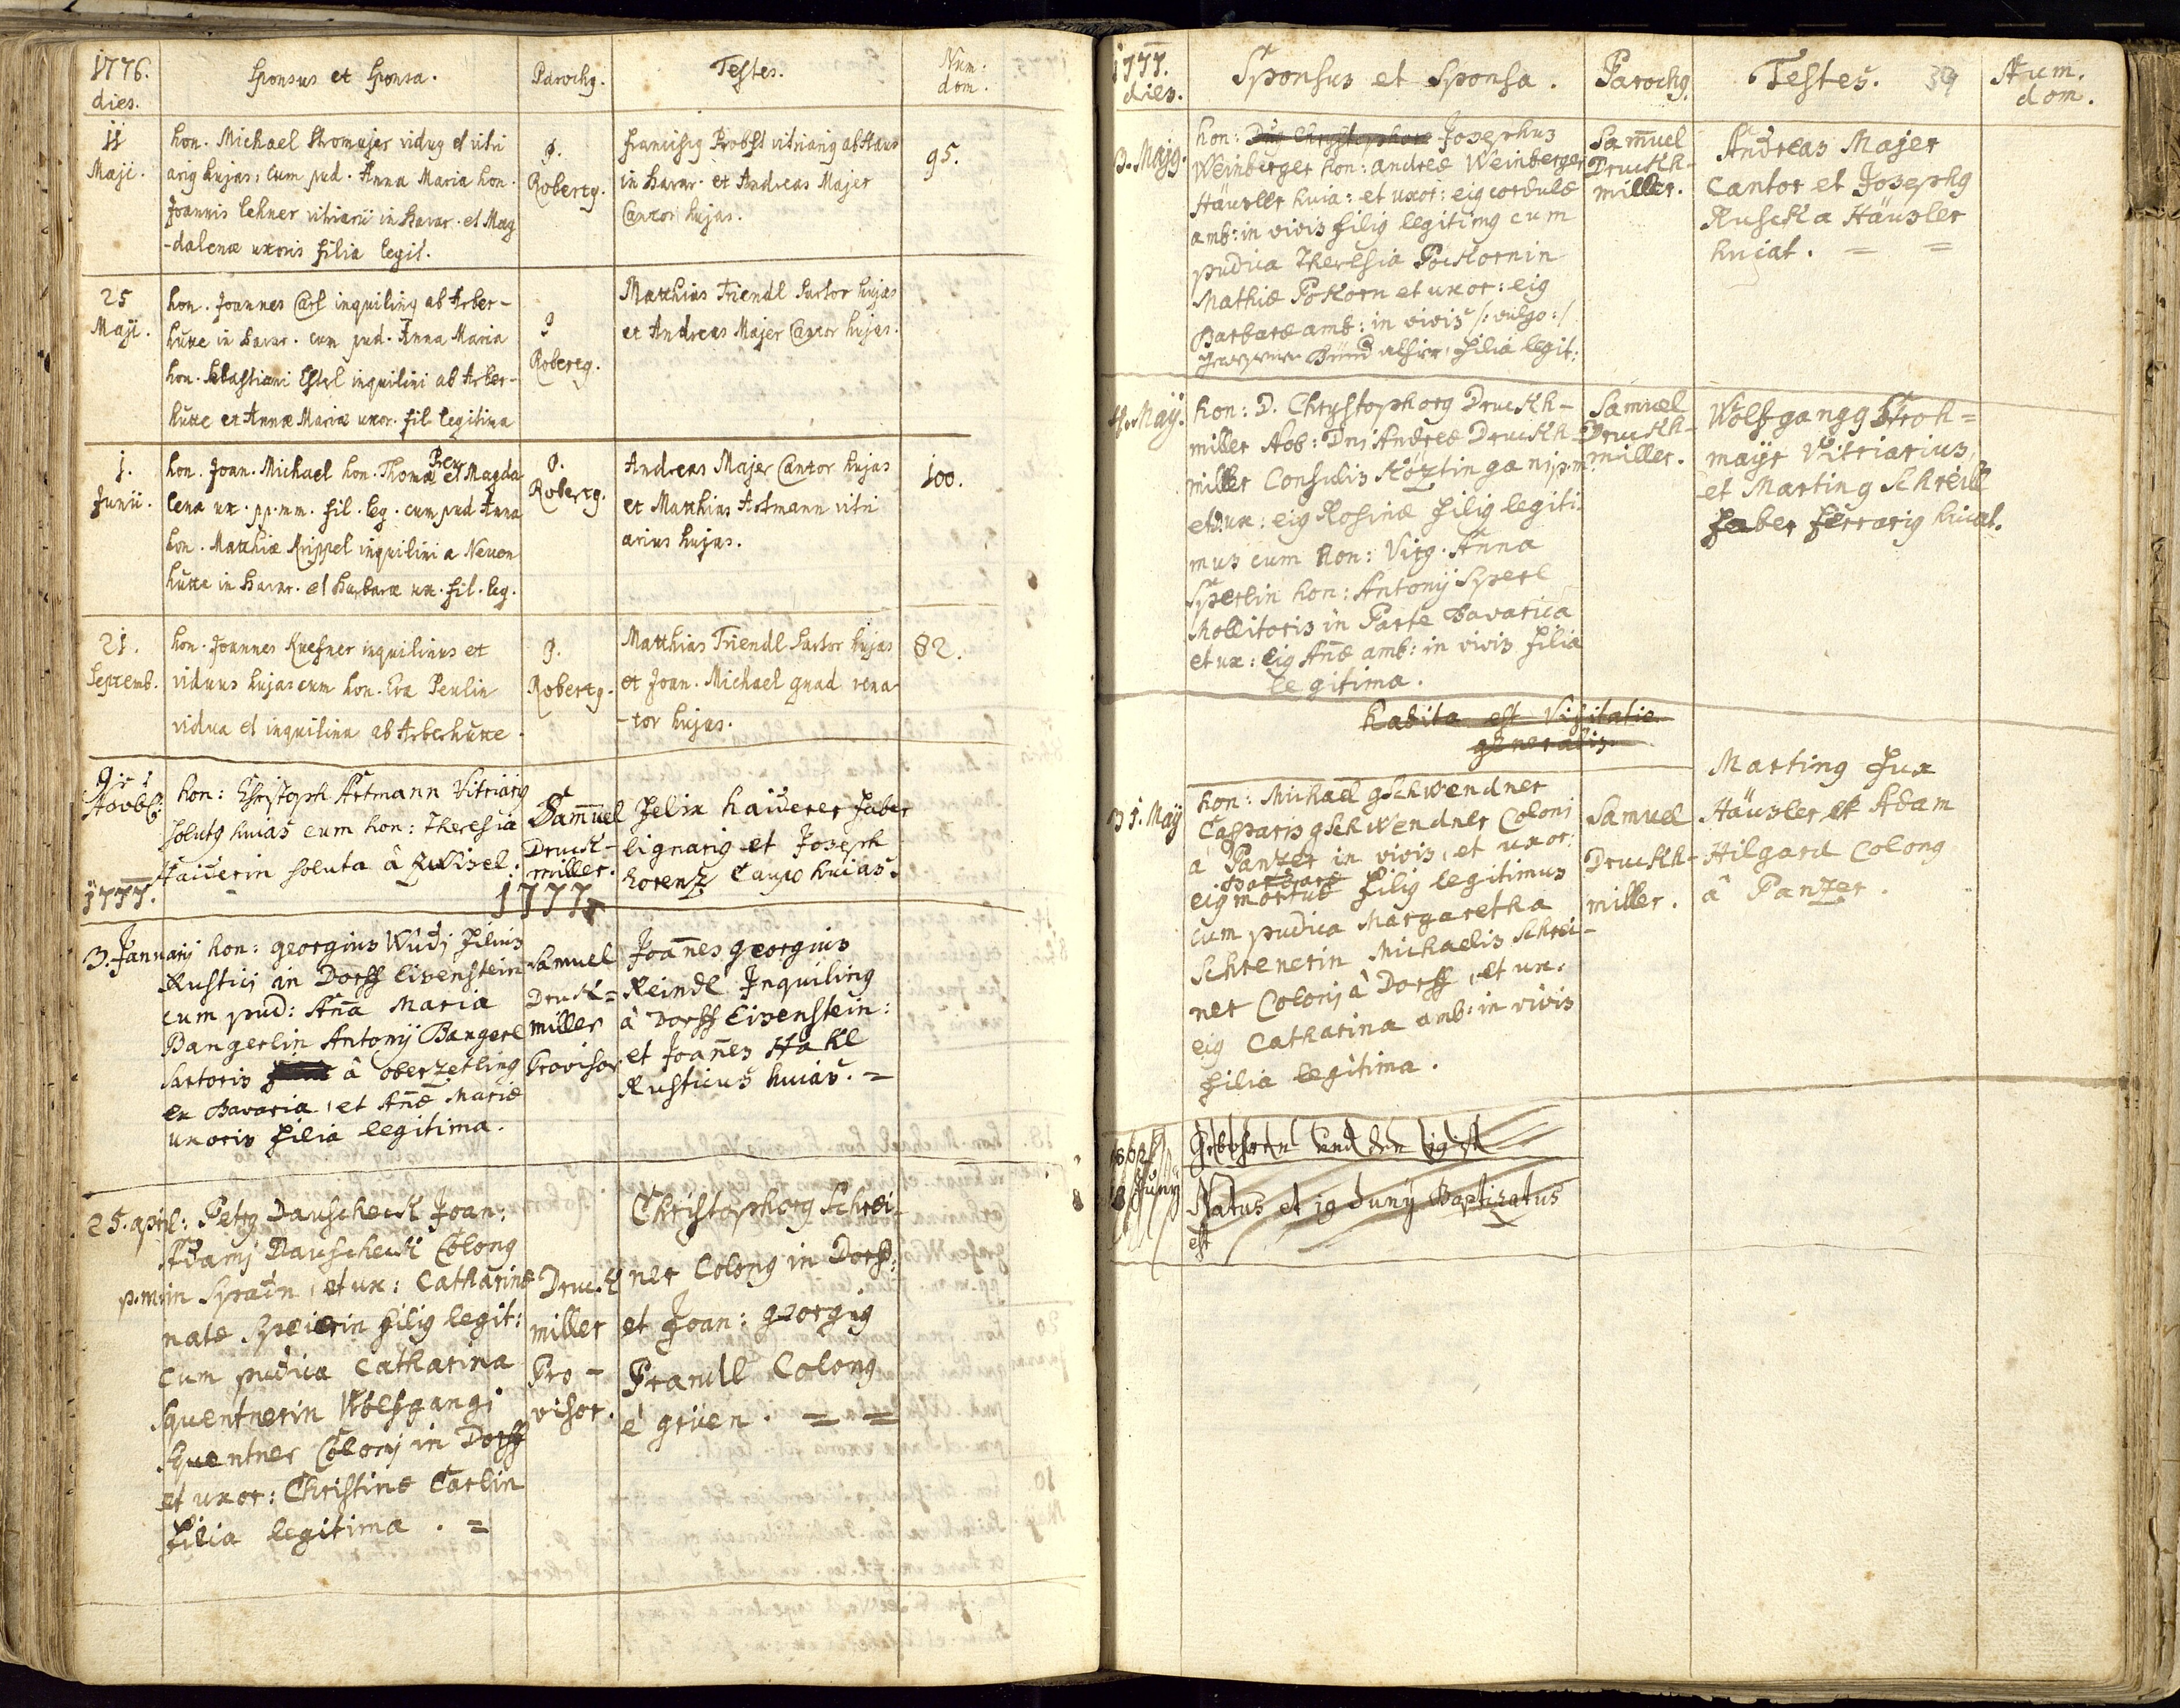 1776.
dies.
Sponsus et Sponsa.
Parochg.
Testes.
Num:
dom.
11
Maji.
hon. Michael Stromajer vidug et vitri
arig hujas, cum pud. Anna Maria hon.
Joannis Lehner vitriarii in Bavar. et Mag
-dalenæ uxoris filia legit.
P.
Robertg.
Francisg Probst vitriarig ab Haus
in Bavar. et Andreas Majer
Cantor hujas.
95.
25
Maji.
hon. Joannes Carl inquiling ab Arber-
hutte in Bavar. cum pud. Anna Maria
hon. Sebastiani Estel inquilini ab Arber-
hutte et Annæ Mariæ uxor. fil legitima
P
Robertg.
Matthias Triendl Sartor hujas
et Andreas Majer Cantor hujas.
1.
Junii.
hon. Joan. Michael hon. Thomæ et Magda
lena ux. pp.mm. fil. leg. cum pud Anna
hon. Matthiæ Krippel inquilini a Neuen
hutte in Bavar. et Barbaræ ux. fil. leg.
P.
Robertg.
Andreas Majer Cantor hujas
et Matthias Artmann vitri
arius hujas.
100.
21.
Septemb.
hon. Joannes Kuefner inquilinus et
viduus hujas cum hon. Eva Peulin
vidua et inquilina ab Arberhutte.
P.
Robertg.
Matthias Triendl Sartor hujas
et Joan. Michael gnad vena
-tor hujas.
82.
hon: Christoph Artmann Vitriarig
solutg huias cum hon: Theresia
Haiderin soluta â Zwisel:
Samuel
Druck-
miller.
Felix haiderer faber
lignarig et Joseph
Lorenz Caupo huias.
1777.
1777
3. Januarij hon: georgius Wudj filius
Rustici in Dorff Eisenstein
cum pud: Aña Maria
Bangerlin Antonij Bangerl
Sartoris â oberzetling
ex Bavaria, et Añæ Mariæ
uxoris filia legitima.
Samuel
Druck=
miller
Provisor
Joañes georgius
Reindl Inquiling
à Dorff Eisenstein:
et Joañes Hakl
Rusticus huias. =
25. april: Petrg Dauscheck Joan:
Adamj Dauscheck Colong
p.m. in Spadn, et ux: Catharinæ
natæ Speierin filig legit:
cum pudica Catharina
Squentnerin Wolfgangi
Squentner Colonj in Dorff
et uxor: Christinæ Carlin
filia legitima. =
Druck
miller
Pro-
visor.
Christophorg Schrei-
ner Colong in Dorff:
et Joan: georgig
Prandl Colong
è grüen. = =
1777.
dies.
Sponsus et Sponsa.
Parochg.
Testes.
39
Num.
dom.
3. Majg.
hon: Chrystophorg Josephus
Weinberger hon: andreæ Weinberger
Häusler huia: et uxor: eig cordulæ
amb: in vivis filig legitimg cum
pudica Theresia Pockornin
Mathiæ Pokorn et uxor: eig
Barbaræ amb: in vivis /: vulgo :/
filia legit:
Samuel
Druckh-
miller.
Andreas Majer
Cantor et Josephg
Ruscka Häusler
huiat. = =
Maÿ.
hon: D. Chrystophorg Druckh-
miller Nob: Dni Andreæ Druckh-
miller Consulis Közting p.m.
et ux: eig Rosinæ filig legiti-
mus cum hon: Virg. Anna
Sperlin hon: Antonij Sperl
Mollitoris in Parte Bavarica
et ux: eig Añæ amb: in vivis filia
legitima.
Samuel
Druckh-
miller.
Wolfgangg Stroh=
mayr Vitriarius,
et Marting Schreill
faber ferrarig huiat.
habita est Visitatio
generalis
31. Maÿ
hon: Michael gschwendner
Casparis gschwendner Colonj
à Panzer in vivis, et uxor:
Barbaræ
eig mortuæ filig legitimus
cum pudica Margaretha
Schrenerin Michaelis Schrei-
ner Colonj à Dorff, et ux:
eig Catharina amb: in vivis
filia legitima.
Samuel
Druckh-
miller.
Marting fux
Häusler et Adam
Hilgard Colong
à Panzer.
18
Junÿ
Natus et 19 Junij Baptizatus
est